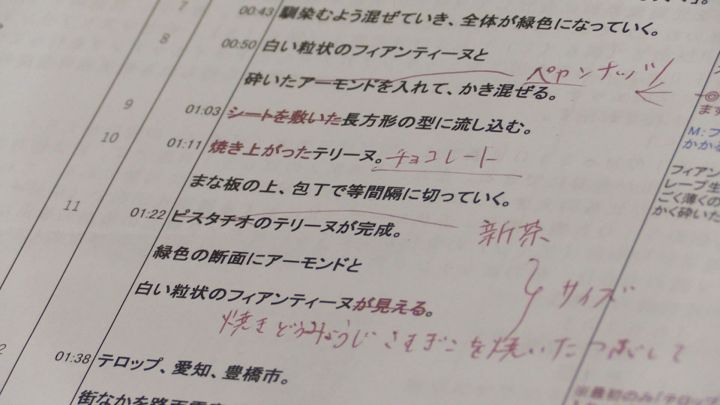 7
00:43 馴染むよう混ぜていき、全体が緑色になっていく。
8
00:50 白い粒状のフィアンティーヌと
ペカンナッツ
砕いたアーモンドを入れて、かき混ぜる。
9
01:03 シートを敷いた長方形の型に流し込む。
10
01:11 焼き上がったテリーヌ。チョコレート
まな板の上、包丁で等間隔に切っていく。
11
01:22 ピスタチオのテリーヌが完成。
新茶
緑色の断面にアーモンドと
サイズ
白い粒状のフィアンティーヌが見える。
焼き を焼いた
01:38 テロップ、愛知、豊橋市。
街なかを路面電
M:フ
かかる
フィアン
レープ生
ごく薄くの
かく砕いた